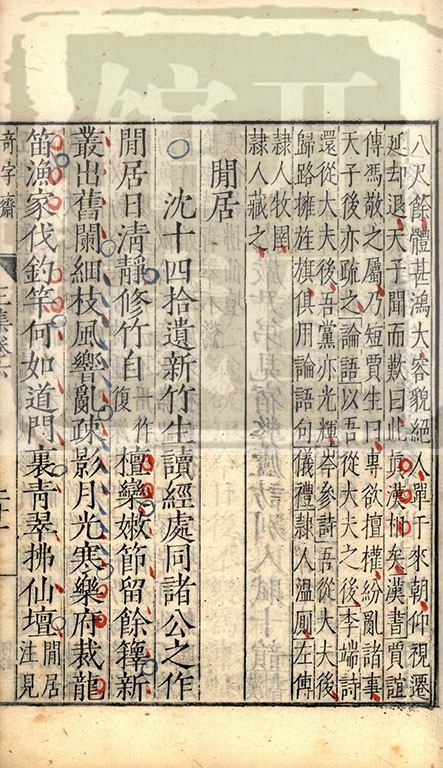 八尺餘體甚鴻大容貌絕人單于來朝仰視遷
延却退天子聞而歎曰此真漢相矣漢書賈誼
傳馮敬之屬乃短賈生曰專欲擅權紛亂諸事
天子後亦疏之論語以吾從大夫之後李端詩
還從大夫後吾黨亦光輝岑參詩吾從大夫後
歸路擁旌旗俱用論語句儀禮隷人溫厠左傳
隷人牧圉
隷人藏之
閒居
沈十四拾遺新竹生讀經處同諸公之作
閒居日清靜修竹自一作復檀欒嫩節留餘籜新
叢出舊闌細枝風響亂疎影月光寒樂府裁龍
笛漁家伐釣竿何如道門裏青翠拂仙壇閒居注見
奇字齋